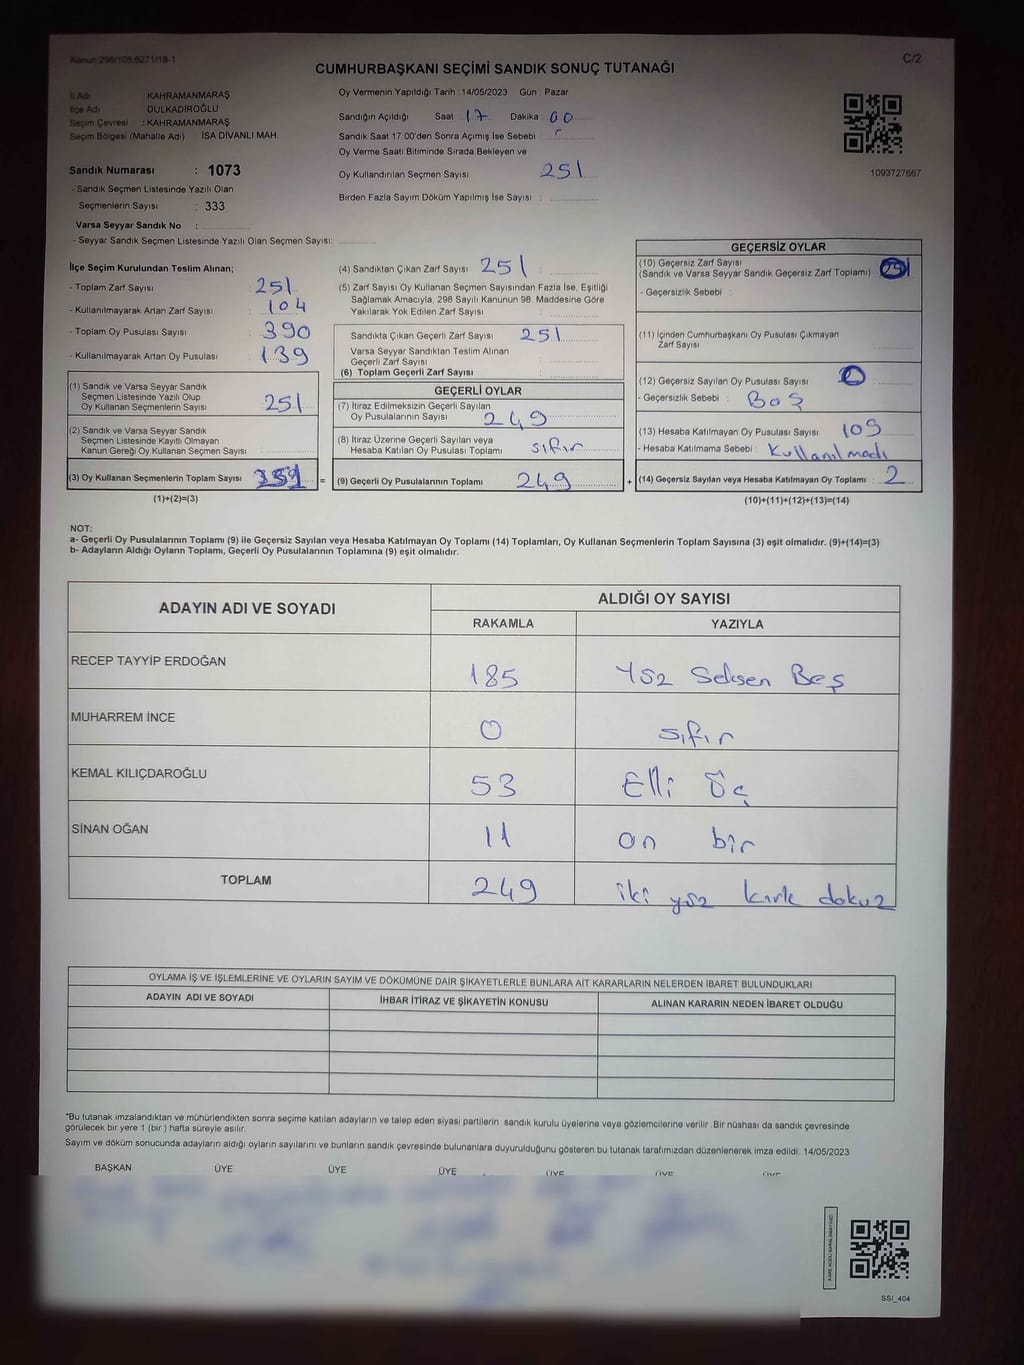 Kanun 298/105,6271/18-1
C/2
CUMHURBAŞKANI SEÇİMİ SANDIK SONUÇ TUTANAĞI
İl Adı KAHRAMANMARAŞ
İlçe Adı DULKADİROĞLU
Seçim Çevresi : KAHRAMANMARAŞ
Seçim Bölgesi (Mahalle Adı) İSA DİVANLI MAH.
Sandık Numarası : 1073
- Sandık Seçmen Listesinde Yazılı Olan
Seçmenlerin Sayısı : 333
Varsa Seyyar Sandık No :
- Seyyar Sandık Seçmen Listesinde Yazılı Olan Seçmen Sayısı:
Oy Vermenin Yapıldığı Tarih : 14/05/2023 Gün : Pazar
Sandığın Açıldığı Saat 17 Dakika : 00
Sandık Saat 17:00'den Sonra Açımış İse Sebebi :
Oy Verme Saati Bitiminde Sırada Bekleyen ve
Oy Kullandırılan Seçmen Sayısı 251
Birden Fazla Sayım Döküm Yapılmış İse Sayısı :
1093727667
İlçe Seçim Kurulundan Teslim Alınan;
- Toplam Zarf Sayısı 251
- Kullanılmayarak Artan Zarf Sayısı : 104
- Toplam Oy Pusulası Sayısı : 390
- Kullanılmayarak Artan Oy Pusulası : 139
(1) Sandık ve Varsa Seyyar Sandık
Seçmen Listesinde Yazılı Olup
Oy Kullanan Seçmenlerin Sayısı 251
(2) Sandık ve Varsa Seyyar Sandık
Seçmen Listesinde Kayıtlı Olmayan
Kanun Gereği Oy Kullanan Seçmen Sayısı :
(3) Oy Kullanan Seçmenlerin Toplam Sayısı =
(1)+(2)=(3)
(4) Sandıktan Çıkan Zarf Sayısı 251 :
(5) Zarf Sayısı Oy Kullanan Seçmen Sayısından Fazla İse, Eşitliği
Sağlamak Amacıyla, 298 Sayılı Kanunun 98. Maddesine Göre
Yakılarak Yok Edilen Zarf Sayısı :
Sandıkta Çıkan Geçerli Zarf Sayısı 251
Varsa Seyyar Sandıktan Teslim Alınan
Geçerli Zarf Sayısı :
(6) Toplam Geçerli Zarf Sayısı :
GEÇERLİ OYLAR
(7) İtiraz Edilmeksizin Geçerli Sayılan
Oy Pusulalarının Sayısı : 249
(8) İtiraz Üzerine Geçerli Sayılan veya
Hesaba Katılan Oy Pusulası Toplamı sıfır
(9) Geçerli Oy Pusulalarının Toplamı : 249 +
GEÇERSİZ OYLAR
(10) Geçersiz Zarf Sayısı
(Sandık ve Varsa Seyyar Sandık Geçersiz Zarf Toplamı)
- Geçersizlik Sebebi :
(11) İçinden Cumhurbaşkanı Oy Pusulası Çıkmayan
Zarf Sayısı :
(12) Geçersiz Sayılan Oy Pusulası Sayısı :
- Geçersizlik Sebebi : Boş
(13) Hesaba Katılmayan Oy Pusulası Sayısı 109
- Hesaba Katılmama Sebebi : Kullanılmadı
(14) Geçersiz Sayılan veya Hesaba Katılmayan Oy Toplamı : 2
(10)+(11)+(12)+(13)=(14)
NOT:
a- Geçerli Oy Pusulalarının Toplamı (9) ile Geçersiz Sayılan veya Hesaba Katılmayan Oy Toplamı (14) Toplamları, Oy Kullanan Seçmenlerin Toplam Sayısına (3) eşit olmalıdır. (9)+(14)=(3)
b- Adayların Aldığı Oyların Toplamı, Geçerli Oy Pusulalarının Toplamına (9) eşit olmalıdır.
ADAYIN ADI VE SOYADI
ALDIĞI OY SAYISI
RAKAMLA YAZIYLA
RECEP TAYYİP ERDOĞAN 185 Yüz Seksen Beş
MUHARREM İNCE 0 sıfır
KEMAL KILIÇDAROĞLU 53 Elli Üç
SİNAN OĞAN 11 on bir
TOPLAM 249 iki yüz kırk dokuz
OYLAMA İŞ VE İŞLEMLERİNE VE OYLARIN SAYIM VE DÖKÜMÜNE DAİR ŞİKAYETLERLE BUNLARA AİT KARARLARIN NELERDEN İBARET BULUNDUKLARI
ADAYIN ADI VE SOYADI İHBAR İTİRAZ VE ŞİKAYETİN KONUSU ALINAN KARARIN NEDEN İBARET OLDUĞU
*Bu tutanak imzalandıktan ve mühürlendikten sonra seçime katılan adayların ve talep eden siyasi partilerin sandık kurulu üyelerine veya gözlemcilerine verilir .Bir nüshası da sandık çevresinde
görülecek bir yere 1 (bir ) hafta süreyle asılır.
Sayım ve döküm sonucunda adayların aldığı oyların sayılarını ve bunların sandık çevresinde bulunanlara duyurulduğunu gösteren bu tutanak tarafımızdan düzenlenerek imza edildi. 14/05/2023
BAŞKAN ÜYE ÜYE ÜYE ÜYE ÜYE ÜYE
SSI_404